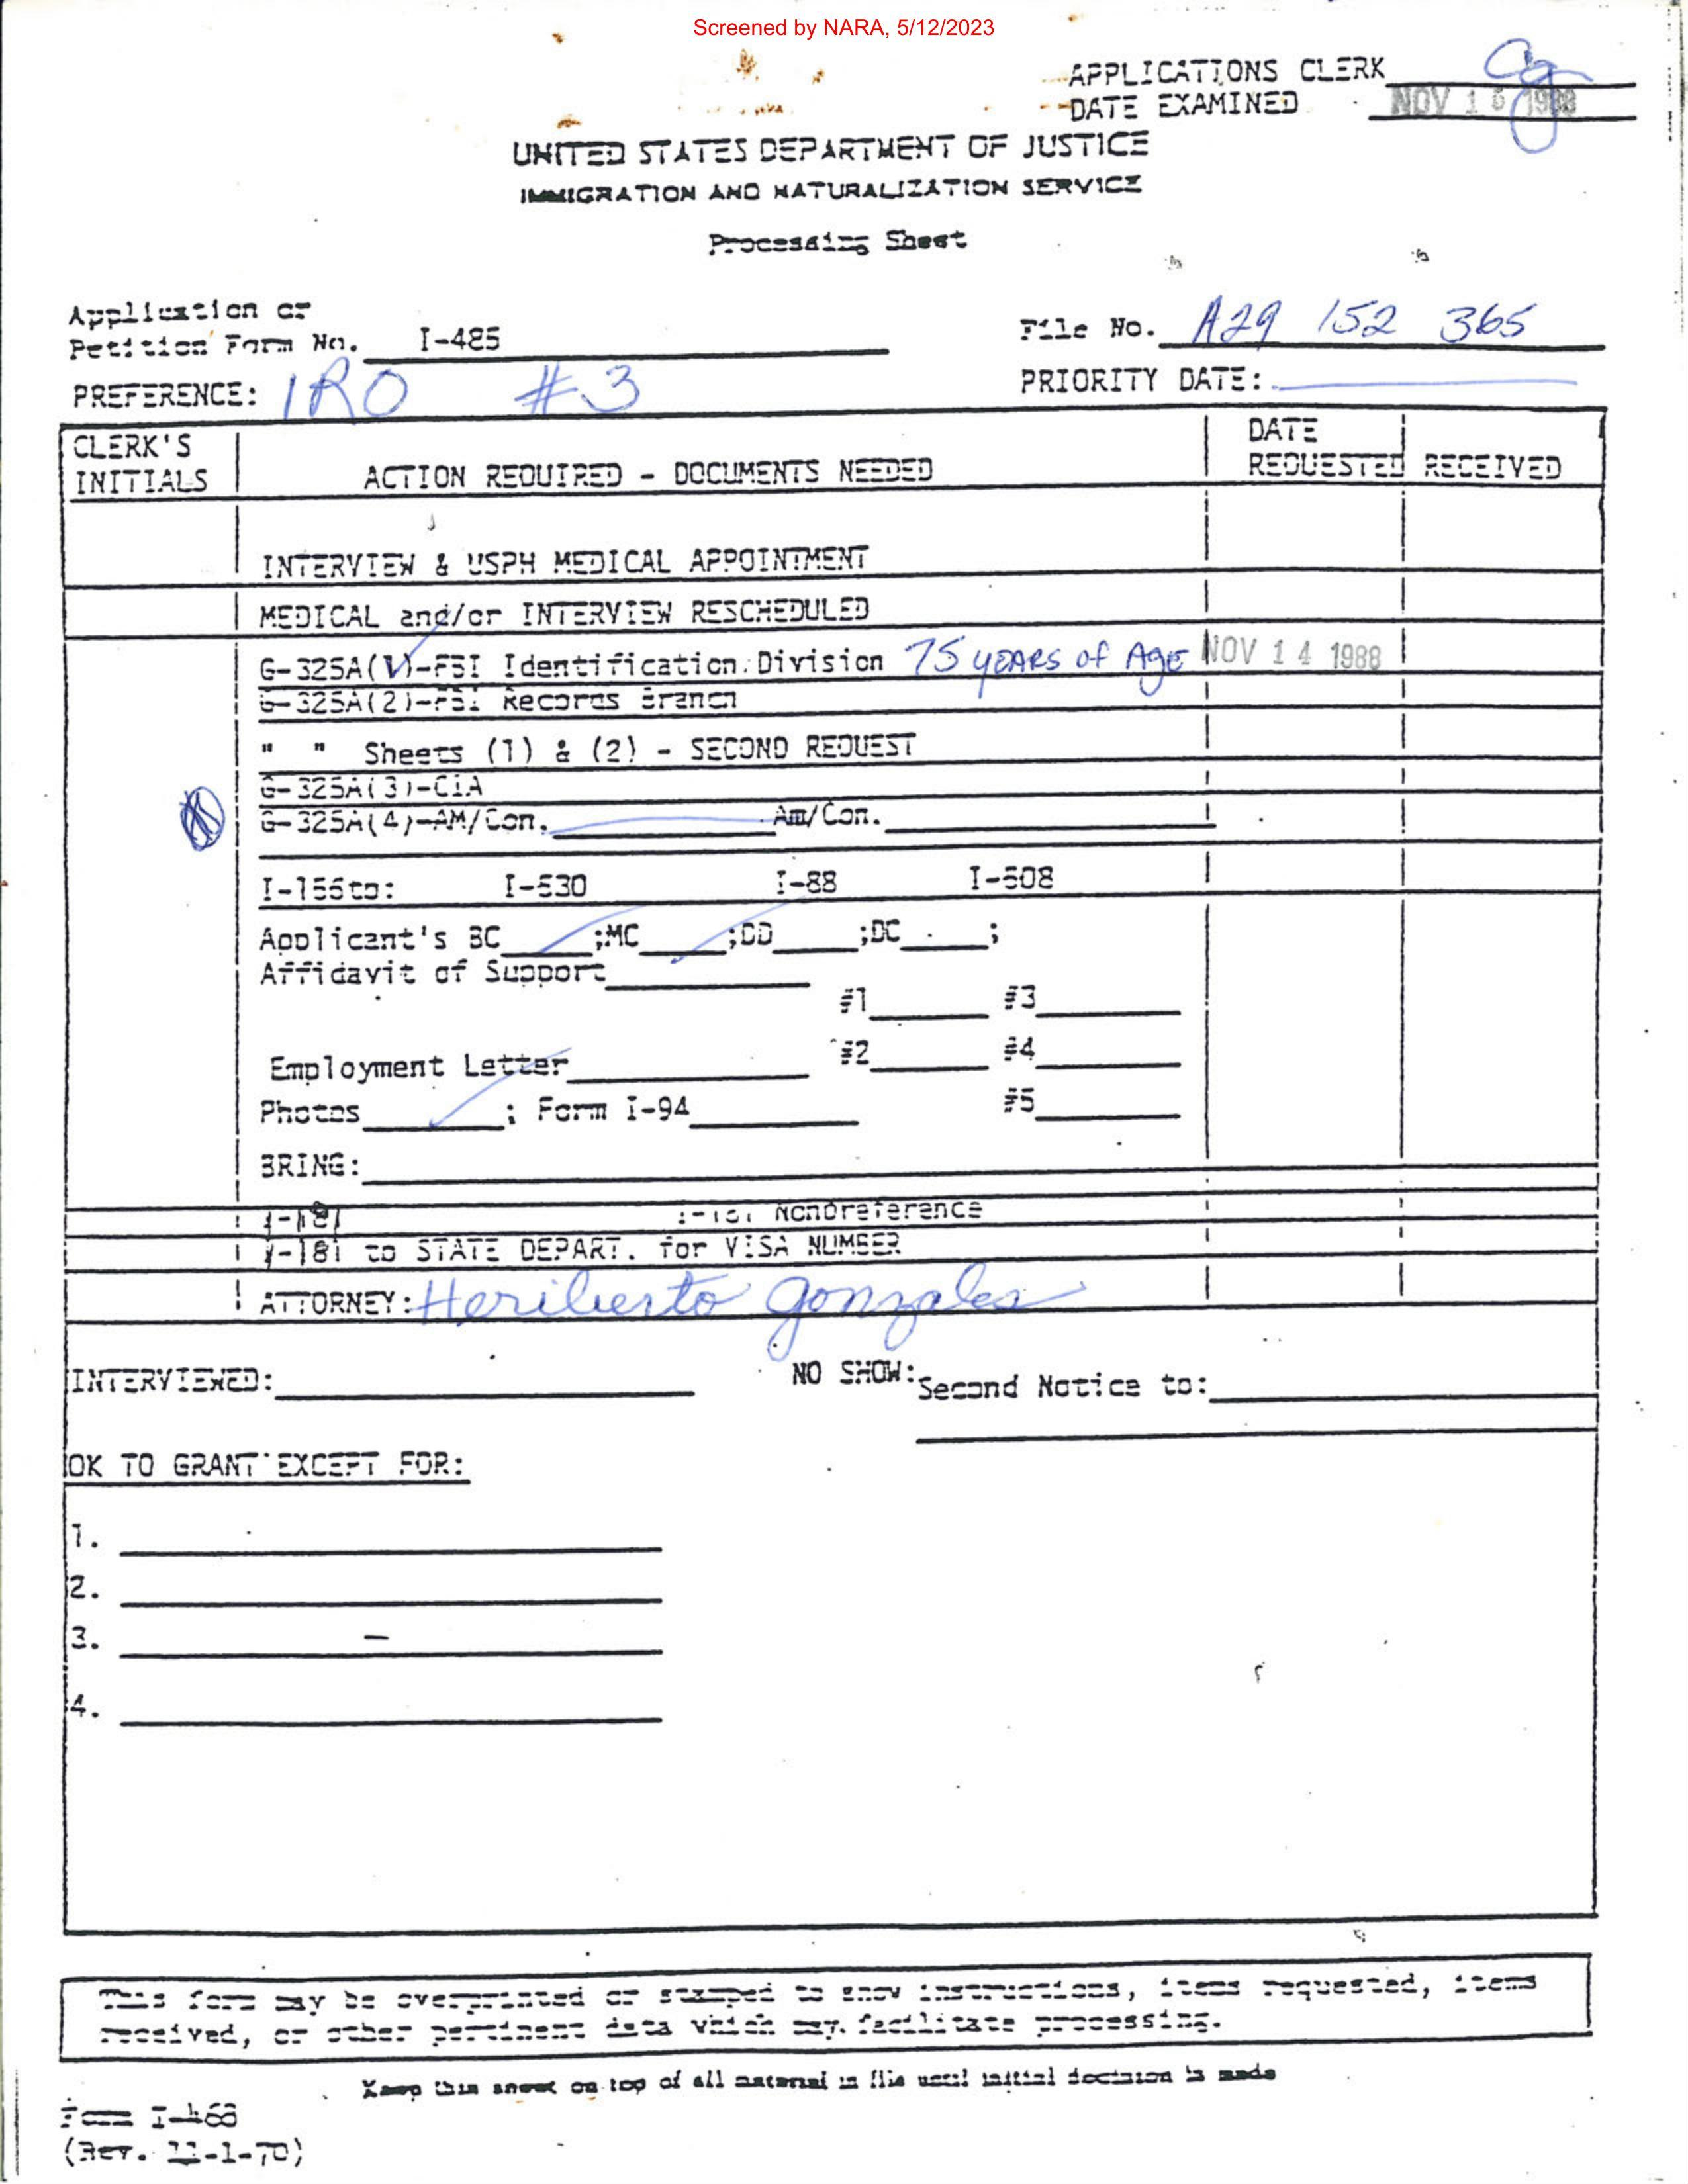 Screened by NARA, 5/12/2023
APPLICATIONS CLERK
DATE EXAMINED NOV 1 1988
UNITED STATES DEPARTMENT OF JUSTICE
IMMIGRATION AND NATURALIZATION SERVICE
Processing Sheet
Application or
Petition Form No. I-485
File No. A29 152 365
PREFERENCE: IRO #3
PRIORITY DATE:
CLERK'S INITIALS
ACTION REQUIRED - DOCUMENTS NEEDED
DATE REQUESTED RECEIVED
INTERVIEW & USPH MEDICAL APPOINTMENT
MEDICAL and/or INTERVIEW RESCHEDULED
G-325A(1)-FBI Identification Division 75 YEARS OF AGE NOV 14 1988
G-325A(2)-FBI Records Branch
" " Sheets (1) & (2) - SECOND REQUEST
G-325A(3)-CIA
G-325A(4)-AM/Con. Am/Con.
I-156to: I-530 I-88 I-508
Applicant's BC ;MC ;DD ;DC ;
Affidavit of Support
#1 #3
Employment Letter #2 #4
Photos ; Form I-94 #5
BRING:
I-181 I-181 Nonpreference
I-181 to STATE DEPART. for VISA NUMBER
ATTORNEY: Heriberto Gonzales
INTERVIEWED: NO SHOW: Second Notice to:
OK TO GRANT EXCEPT FOR:
1.
2.
3. –
4.
This form may be overprinted or stamped to show instructions, items requested, items
received, or other pertinent data which may facilitate processing.
Keep this sheet on top of all material in file until initial decision is made
Form I-468
(Rev. 11-1-70)